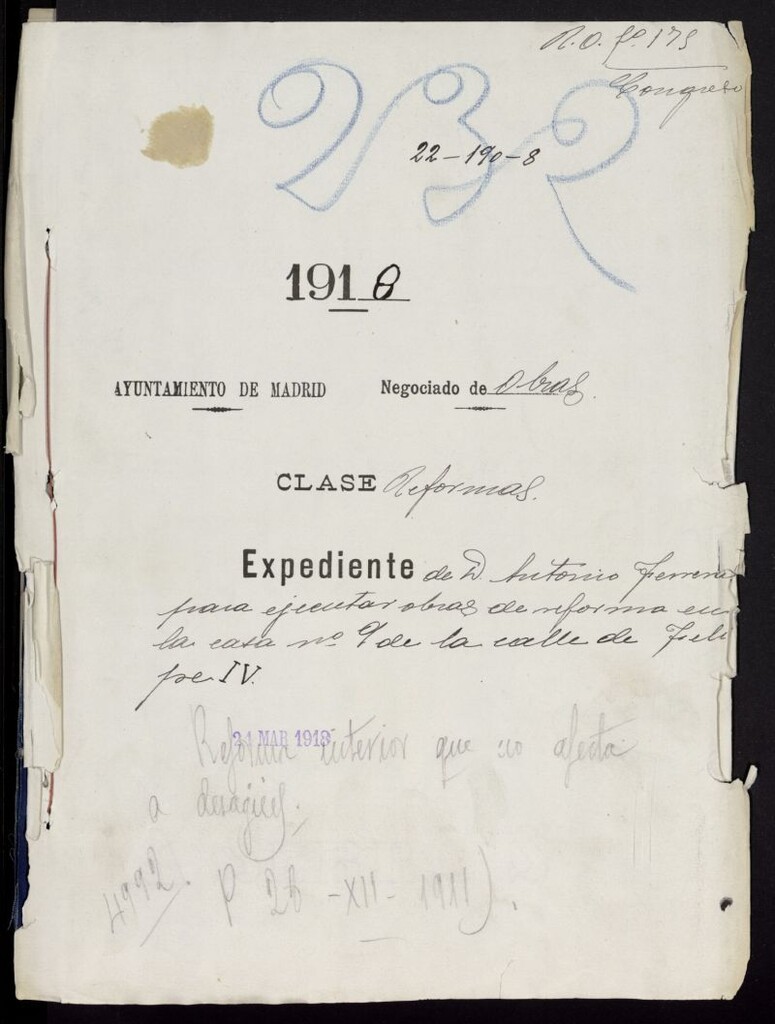 R.O. fº. 175
Congreso
232
22-190-8
1918
AYUNTAMIENTO DE MADRID Negociado de Obras.
CLASE Reformas.
Expediente de D. Antonio Ferrera
para ejecutar obras de reforma en
la casa nº 9 de la calle de Feli
pe IV.
21 MAR 1918
Reforma interior que no afecta
a desagües.
4992. P 28-XII-1911).